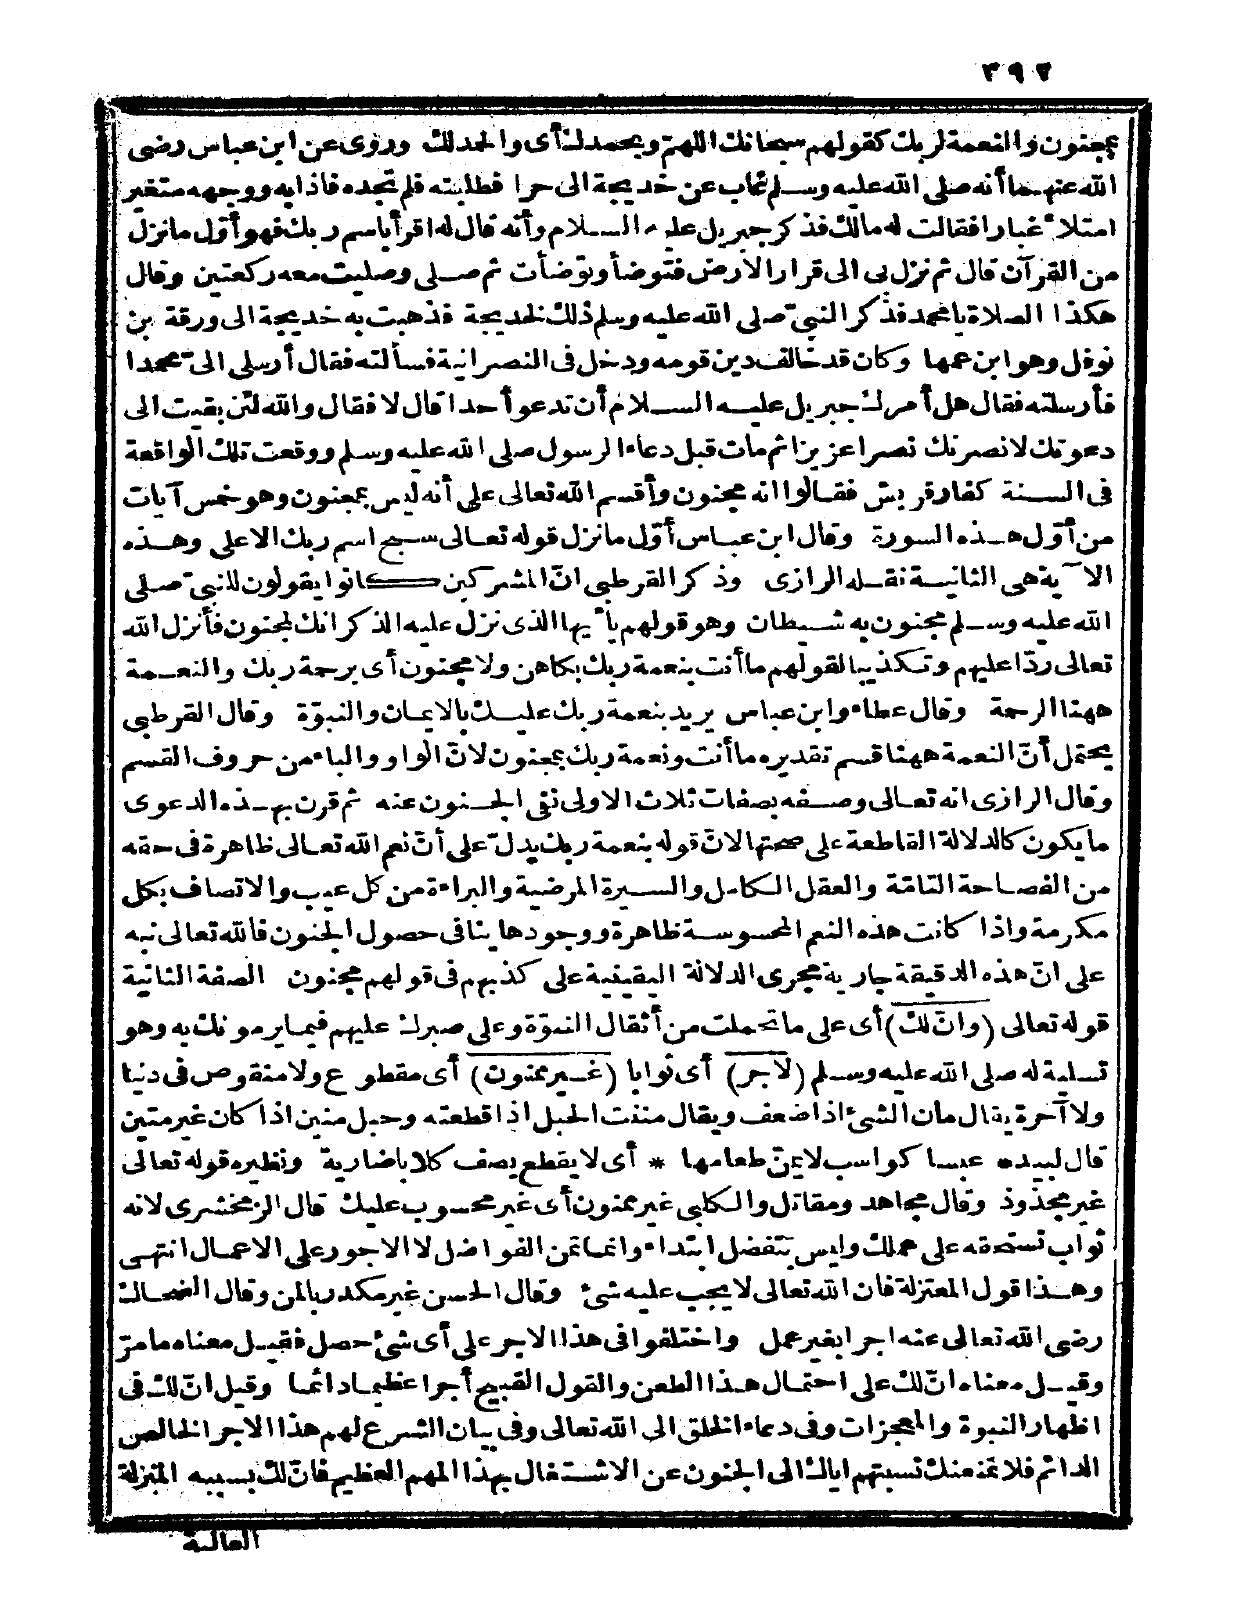 ٣٩٢
بمجنون والنعمة لربك كقولهم سبحانك اللهمّ وبحمدك أى والحمد لك وروى عن ابن عباس رضى
الله عنهما أنه صلى الله عليه وسلم غاب عن خديجة الى حرا فطلبته فلم تجده فاذا به ووجهه متغير
امتلأ غبارا فقالت له مالك فذكر جبريل عليه السلام وأنه قال له اقرأ باسم ربك فهو أوّل مانزل
من القرآن قال ثم نزل بى الى قرار الارض فتوضأ وتوضأت ثم صلى وصليت معه ركعتين وقال
هكذا الصلاة يامحمد فذكر النبىّ صلى الله عليه وسلم ذلك لخديجة فذهبت به خديجة الى ورقة بن
نوفل وهو ابن عمها وكان قد خالف دين قومه ودخل فى النصرانية فسألته فقال أرسلى الىّ محمدا
فأرسلته فقال هل أمرك جبريل عليه السلام أن تدعو أحدا قال لا فقال والله لئن بقيت الى
دعوتك لانصرنك نصرا عزيزا ثم مات قبل دعاء الرسول صلى الله عليه وسلم ووقعت تلك الواقعة
فى السنة كفار قريش فقالوا انه مجنون وأقسم الله تعالى على أنه ليس بمجنون وهو خمس آيات
من أوّل هذه السورة وقال ابن عباس أوّل مانزل قوله تعالى سبح اسم ربك الاعلى وهذه
الآية هى الثانية نقله الرازى وذكر القرطبى انّ المشركين كانوا يقولون للنبىّ صلى
الله عليه وسلم مجنون به شيطان وهو قولهم يأيها الذى نزل عليه الذكر انك لمجنون فأنزل الله
تعالى ردّا عليهم وتكذيبا لقولهم ما أنت بنعمة ربك بكاهن ولا مجنون أى برحمة ربك والنعمة
ههنا الرحمة وقال عطاء وابن عباس يريد بنعمة ربك عليك بالايمان والنبوّة وقال القرطبى
يحتمل أنّ النعمة ههنا قسم تقديره ما أنت ونعمة ربك بمجنون لانّ الواو والباء من حروف القسم
وقال الرازى انه تعالى وصفه بصفات ثلاث الاولى نفى الجنون عنه ثم قرن بهذه الدعوى
ما يكون كالدلالة القاطعة على صحتها لانّ قوله بنعمة ربك يدلّ على أنّ نعم الله تعالى ظاهرة فى حقه
من الفصاحة التامّة والعقل الكامل والسيرة المرضية والبراءة من كل عيب والاتصاف بكل
مكرمة واذا كانت هذه النعم المحسوسة ظاهرة ووجودها ينافى حصول الجنون فالله تعالى نبه
على انّ هذه الدقيقة جارية مجرى الدلالة اليقينية على كذبهم فى قولهم مجنون الصفة الثانية
قوله تعالى (وانّ لك) أى على ما تحملت من أثقال النبوّة وعلى صبرك عليهم فيما يرمونك به وهو
تسلية له صلى الله عليه وسلم (لاجر) أى ثوابا (غير ممنون) أى مقطوع ولا منقوص فى دنيا
ولا آخرة يقال مان الشئ اذا ضعف ويقال مننت الحبل اذا قطعته وحبل منين اذا كان غير متين
قال لبيده عبسا كواسب لا يمنّ طعامها * أى لا يقطع يصف كلابا ضارية ونظيره قوله تعالى
غير مجذوذ وقال مجاهد ومقاتل والكلبى غير ممنون أى غير محسوب عليك قال الزمخشرى لانه
ثواب تستحقه على عملك وليس بتفضل ابتداء وانما تمن الفواضل لا الاجور على الاعمال انتهى
وهذا قول المعتزلة فان الله تعالى لا يجب عليه شئ وقال الحسن غير مكدر بالمن وقال الضحاك
رضى الله تعالى عنه اجرا بغير عمل واختلفوا فى هذا الاجر على أى شئ حصل فقيل معناه ما مرّ
وقيل معناه انّ لك على احتمال هذا الطعن والقول القبيح أجرا عظيما دائما وقيل انّ لك فى
اظهار النبوة والمعجزات وفى دعاء الخلق الى الله تعالى وفى بيان الشرع لهم هذا الاجر الخالص
الدائم فلا تمنعنك نسبتهم اياك الى الجنون عن الاشتغال بهذا المهم العظيم فانّ لك بسببه المنزلة
العالية